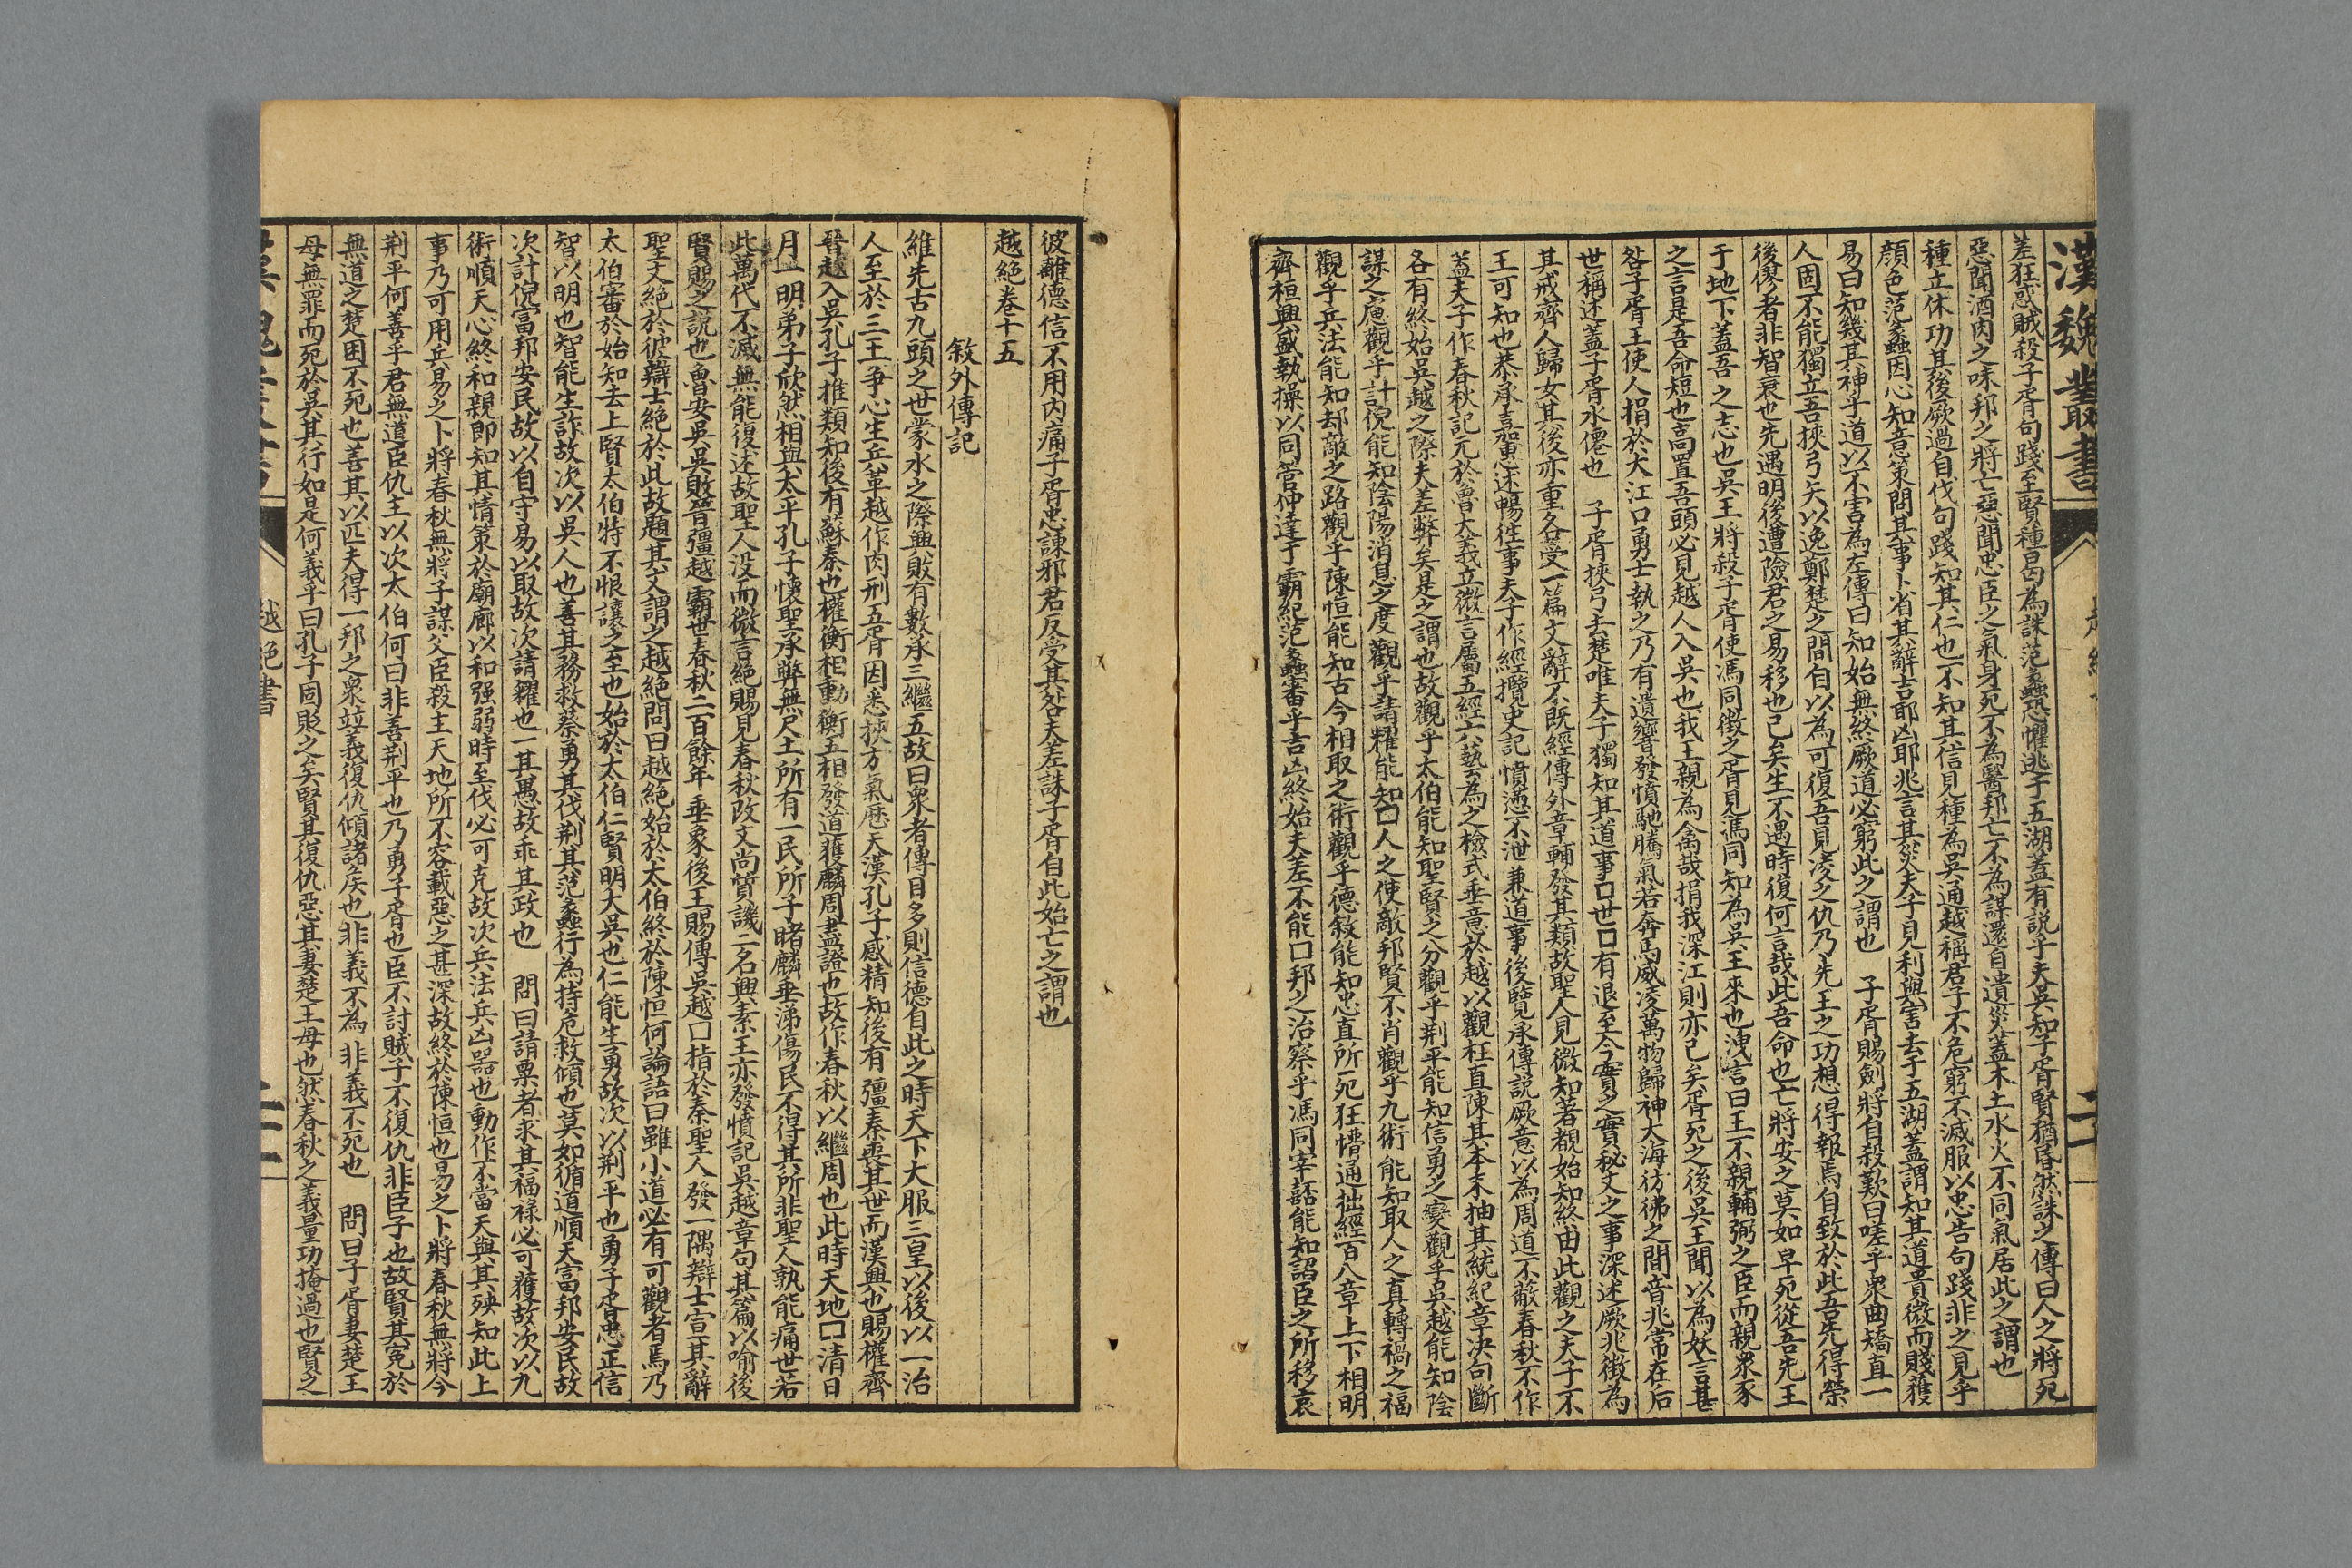 漢魏叢書
越絕
二
差狂惑賊殺子胥句踐至賢種曷為誅范蠡恐懼逃于五湖蓋有說乎夫吳知子胥賢猶昏然誅之傳曰人之將死
惡聞酒肉之味邦之將亡惡聞忠臣之氣身死不為醫邦亡不為謀還自遺災蓋木土水火不同氣居此之謂也
種立休功其後厥過自伐句踐知其仁也不知其信見種為吳通越稱君子不危窮不滅服以忠告句踐非之見乎
顏色范蠡因心知意策問其事卜省其辭吉耶凶耶兆言其災夫子見利與害去于五湖蓋謂知其道貴微而賤獲
易曰知幾其神乎道以不害為左傳曰知始無終厥道必窮此之謂也 子胥賜劍將自殺歎曰嗟乎衆曲矯直一
人固不能獨立吾挾弓矢以逸鄭楚之間自以為可復吾見凌之仇乃先王之功想得報焉自致於此吾先得榮
後僇者非智衰也先遇明後遭險君之易移也已矣生不遇時復何言哉此吾命也亡將安之莫如早死從吾先王
于地下蓋吾之志也吳王將殺子胥使馮同徵之胥見馮同知為吳王來也洩言曰王不親輔弼之臣而親衆豕
之言是吾命短也高置吾頭必見越人入吳也我王親為禽哉捐我深江則亦已矣胥死之後吳王聞以為妖言甚
咎子胥王使人捐於大江口勇士執之乃有遺響發憤馳騰氣若奔馬威凌萬物歸神大海彷彿之間音兆常在后
世稱述蓋子胥水僊也 子胥挾弓去楚唯夫子獨知其道事口世口有退至今實之實秘文之事深述厥兆徵為
其戒齊人歸女其後亦重各受一篇文辭不既經傳外章輔發其類故聖人見微知著覩始知終由此觀之夫子不
王可知也恭承嘉惠述暢往事夫子作經攬史記憤懣不泄兼道事後覽承傳說厥意以為周道不敝春秋不作
蓋夫子作春秋記元於魯大義立微言屬五經六藝為之檢式垂意於越以觀枉直陳其本末抽其統紀章決句斷
各有終始吳越之際夫差弊矣是之謂也故觀乎太伯能知聖賢之分觀乎荆平能知信勇之變觀乎吳越能知陰
謀之慮觀乎計倪能知陰陽消息之度觀乎請糴能知口人之使敵邦賢不肖觀乎九術能知取人之真轉禍之福
觀乎兵法能知却敵之路觀乎陳恒能知古今相取之術觀乎德敘能知忠直所死狂懵通拙經百八章上下相明
齊桓興盛執操以同管仲達于霸紀范蠡審乎吉凶終始夫差不能口邦之治察乎馮同宰嚭能知諂臣之所移哀
彼離德信不用内痛子胥忠諫邪君反受其咎夫差誅子胥自此始亡之謂也
越絕卷十五
敘外傳記
維先古九頭之世蒙水之際興敗有數承三繼五故曰衆者傳目多則信德自此之時天下大服三皇以後以一治
人至於三王爭心生兵革越作肉刑五胥因悉挾方氣歷天漢孔子感精知後有彊秦喪其世而漢興也賜權齊
晉越入吳孔子推類知後有蘇秦也權衡相動衡五相發道獲麟周盡證也故作春秋以繼周也此時天地口清日
月一明弟子欣然相與太平孔子懷聖承弊無尺土所有一民所子睹麟垂涕傷民不得其所非聖人孰能痛世若
此萬代不滅無能復述故聖人没而微言絕賜見春秋改文尚質譏二名興素王亦發憤記吳越章句其篇以喻後
賢賜之說也魯安吳吳敗晉彊越霸世春秋二百餘年垂象後王賜傳吳越口指於秦聖人發一隅辯士宣其辭
聖文絕於彼辯士絕於此故題其文謂之越絕問曰越絕始於太伯終於陳恒何論語曰雖小道必有可觀者焉乃
太伯審於始知去上賢太伯特不恨讓之至也始於太伯仁賢明大吳也仁能生勇故次以荆平也勇子胥忠正信
智以明也智能生詐故次以吳人也善其務救蔡勇其伐荆其范蠡行為持危救傾也莫如循道順天富邦安民故
次計倪富邦安民故以自守易以取故次請糴也一其愚故乖其政也 問曰請粟者求其福祿必可獲故次以九
術順天心終和親即知其情策於廟廊以和强弱時至伐必可克故次兵法兵凶器也動作不當天與其殃知此上
事乃可用兵易之卜將春秋無將子謀父臣殺主天地所不容載惡之甚深故終於陳恒也易之卜將春秋無將今
荆平何善乎君無道臣仇主以次太伯何曰非善荆平也乃勇子胥也臣不討賊子不復仇非臣子也故賢其寃於
無道之楚困不死也善其以匹夫得一邦之衆並義復仇傾諸侯也非義不為非義不死也 問曰子胥妻楚王
母無罪而死於吳其行如是何義乎曰孔子固貶之矣賢其復仇惡其妻楚王母也然春秋之義量功掩過也賢之
越絕書